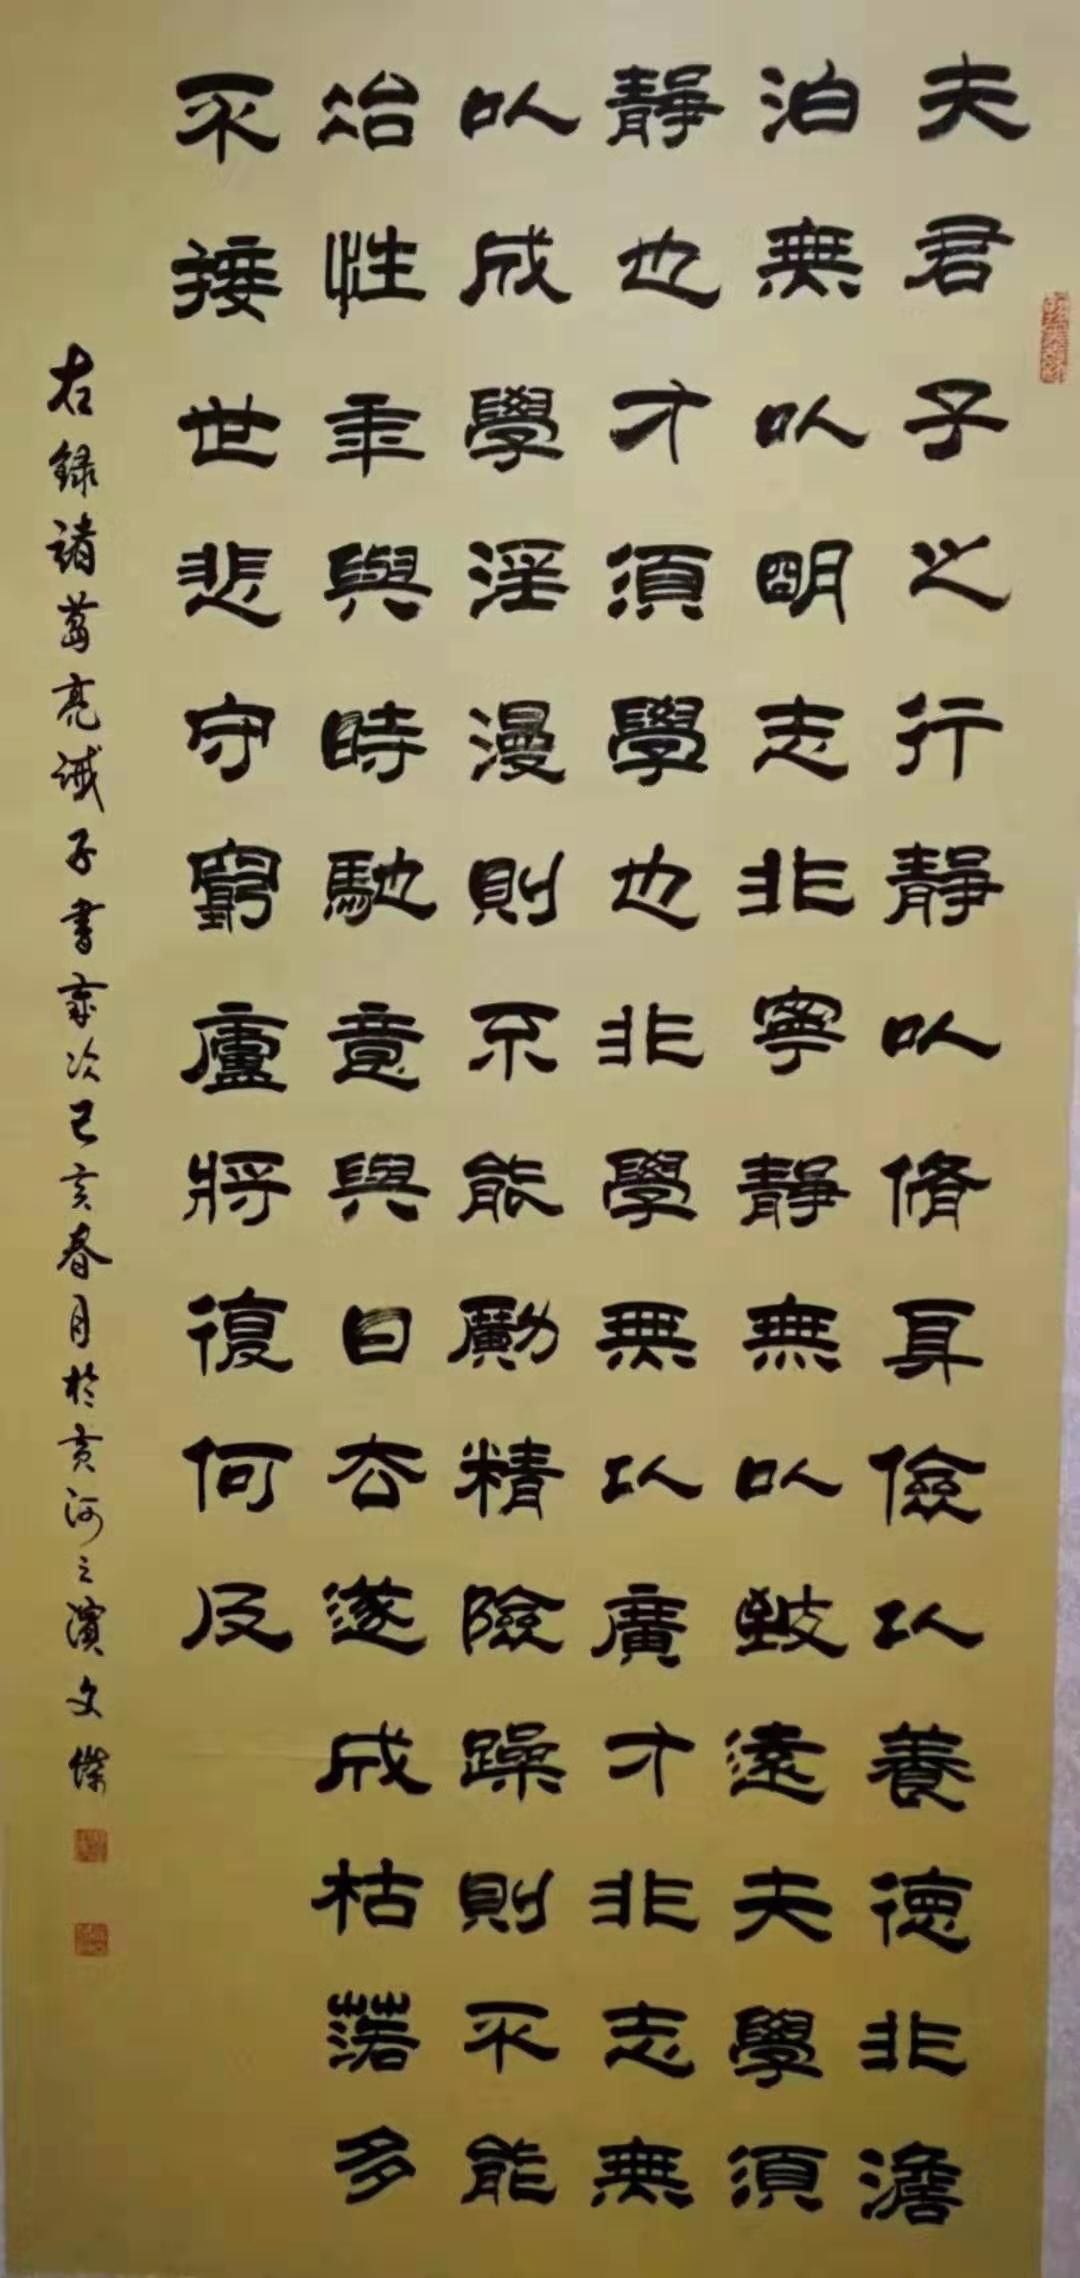 夫君子之行靜以脩身儉以養德非澹
泊無以明志非寧靜無以致遠夫學須
靜也才須學也非學無以廣才非志無
以成學淫漫則不能勵精險躁則不能
冶性年與時馳意與日去遂成枯落多
不接世悲守窮廬將復何及
右録諸葛亮誡子書歲次己亥春月於黃河之濱文傑